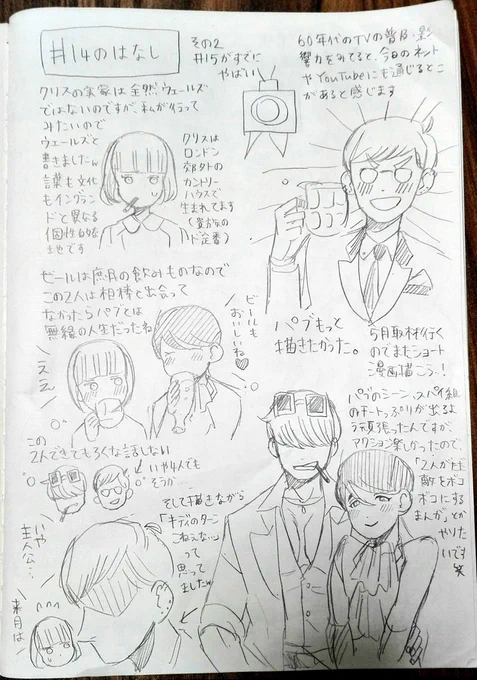 #14のはなし
その2
#15がすでに
やばい
60年代のTVの普及・影
響力をみてると、今日のネット
やYouTubeにも通じるとこ
があると感じます
クリスの実家は全然ウェールズ
ではないのですが、私が行って
みたいので
ウェールズと
書きましたw
言葉も文化
もイングラン
ドと異なる
個性的な
土地です
クリスは
ロンドン
郊外の
カントリー
ハウスで
生まれてます
(貴族の
ド定番)
ビールは庶民の飲みものなので
この2人は相棒と出会って
なかったらパブとは
無縁の人生だったね
ビールも
おいしいね♥
パブもっと
描きたかった。
5月取材行く
のでまたショート
漫画描こう!
ええ
この
2人できてもろくな話しない
いや4人でも
そうか
パブのシーン、スパイ組
のチートっぷりが出るよ
う頑張ったんですが、
アクション楽しかったので、
「2人が
敵をボコ
ボコにする
まんが」とか
やりた
いです
笑
そして描きながら
「キディのターン
こねえな」
って
思って
ましたw
いや
主人公…
来月は